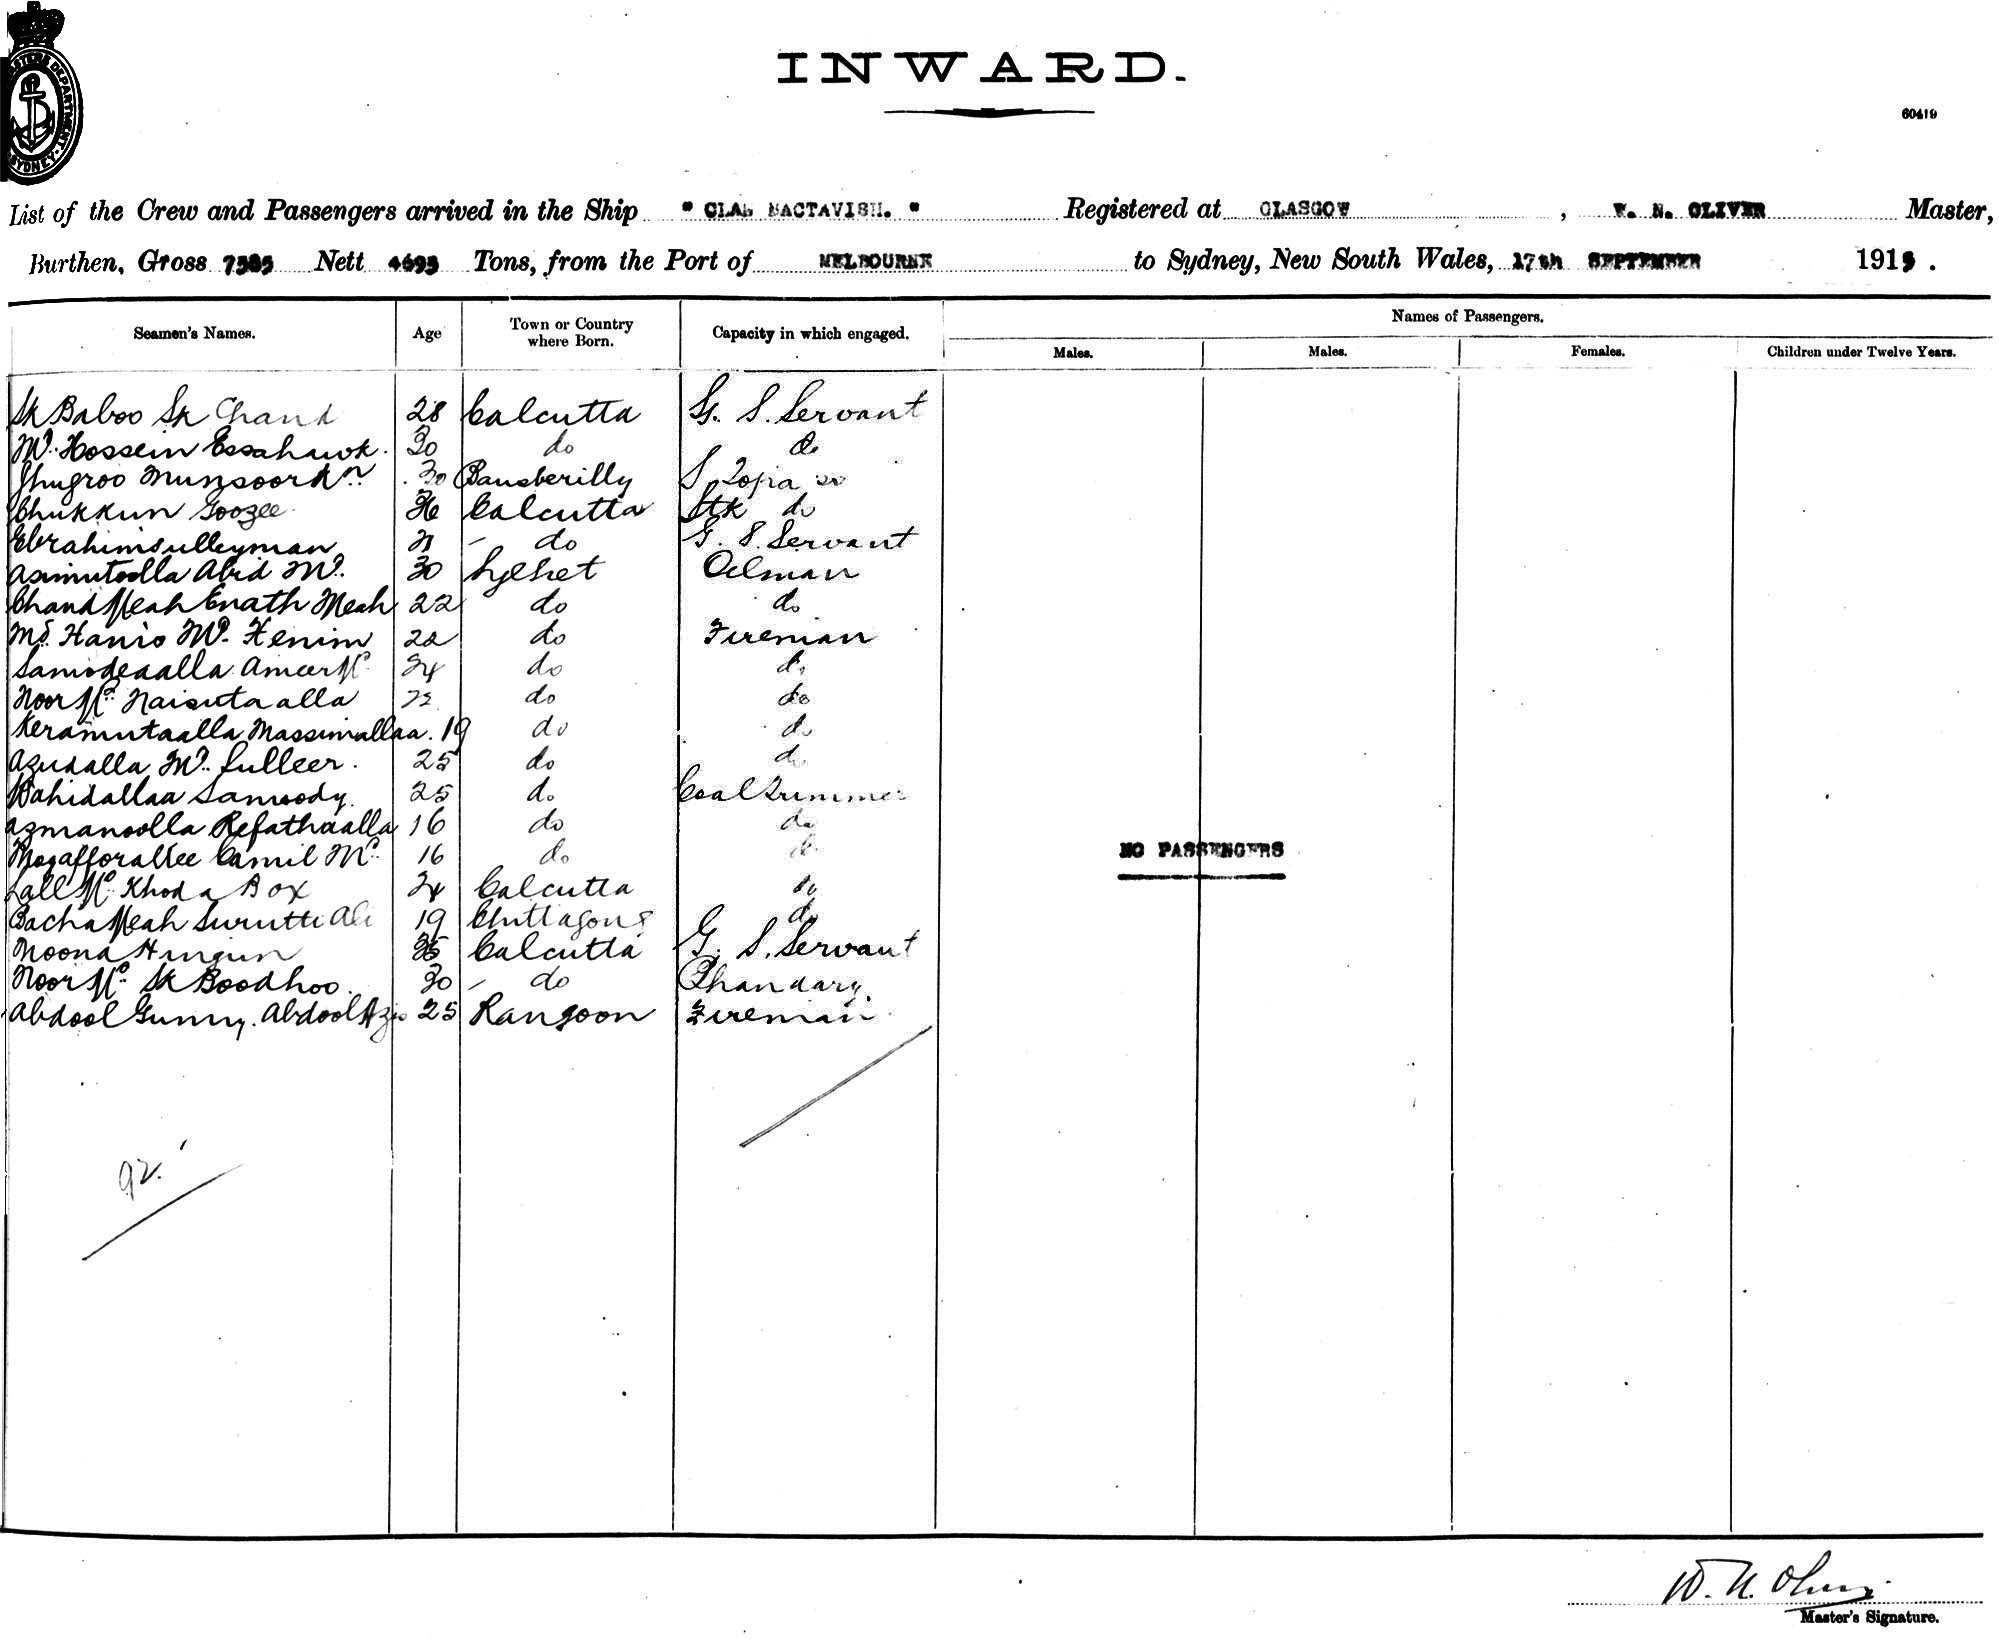 INWARD.
60419
List of the Crew and Passengers arrived in the Ship "CLAN MACTAVISH." Registered at GLASGOW, W. N. OLIVER Master,
Burthen, Gross 7385 Nett 4693 Tons, from the Port of MELBOURNE to Sydney, New South Wales, 17th SEPTEMBER 1915.
Seamen's Names. Age Town or Country where Born. Capacity in which engaged. Names of Passengers.
Males. Males. Females. Children under Twelve Years.
Sk Baboo Sk Chand 28 Calcutta G. S. Servant
Md. Hossein Essahawk. 30 do do
Jhugroo Munsoor 30 Bansberilly S Topia
Chukkun Goozee 36 Calcutta Stk do
Ebrahimsulleyman do G. S. Servant
Asimutoolla Abid Md. 30 Sylhet Oilman
Chand Meah Enath Meah 22 do do
Md. Hanio Md. Henim 22 do Fireman
Samodeaalla Ameer Md. 24 do do
Noor Md. Naisutaalla 22 do do
Keramutaalla Massimallaa. 19 do do
Azudalla Md. fulleer. 25 do do
Wahidallaa Samoody. 25 do Coal Trimmer
Azmanoolla Refathaalla 16 do do
Mozafforallee Camil Md. 16 do do
Lall Md. Khoda Box 24 Calcutta do
Bacha Meah Surutti Ali 19 Chittagong do
Noona Hingun 35 Calcutta G. S. Servant
Noor Md. Sk Boodhoo. 30 do Bhandary.
Abdool Gunny. Abdool Azis 25 Rangoon Fireman
NO PASSENGERS
92.
W. N. Oliver
Master's Signature.